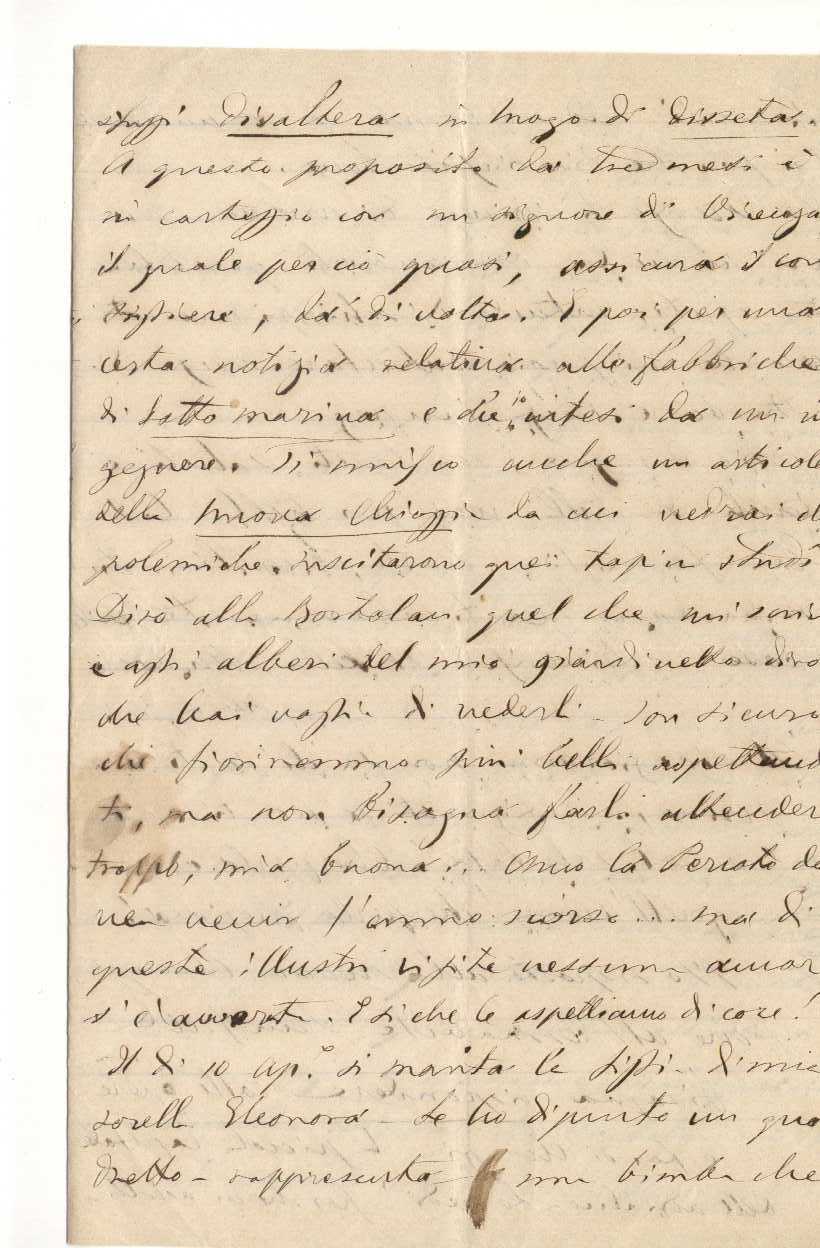 disaltera in luogo di disseta.
A questo proposito da tre mesi è
in carteggio con un signore di Vicenza
il quale perciò quasi, assicura il con
sigliere, dà di volta. E poi per una
certa notizia relativa alle fabbriche
di Sotto marina e che io intesi da un in
gegnere. Ti unisco anche un articolo
della Nuova Chioggia da cui vedrai
polemiche suscitarono quei studi
Dirò alla Bortolan quel che mi scriv
e agli alberi del mio giardinetto dirò
che hai voglia di vederli - Son sicura
che fioriranno più belli aspettand
ti, ma non bisogna farli attender
troppo, mia buona... Anco la do
vea venir l'anno scorso... ma di
queste illustri visite nessuna ancor
s'è avverata. E sì che le aspettiamo di core!
Il dì 10 ap.e si marita la figlia di mia
sorella Eleonora - Le ho dipinto un qua
dretto - rappresenta una bimba che